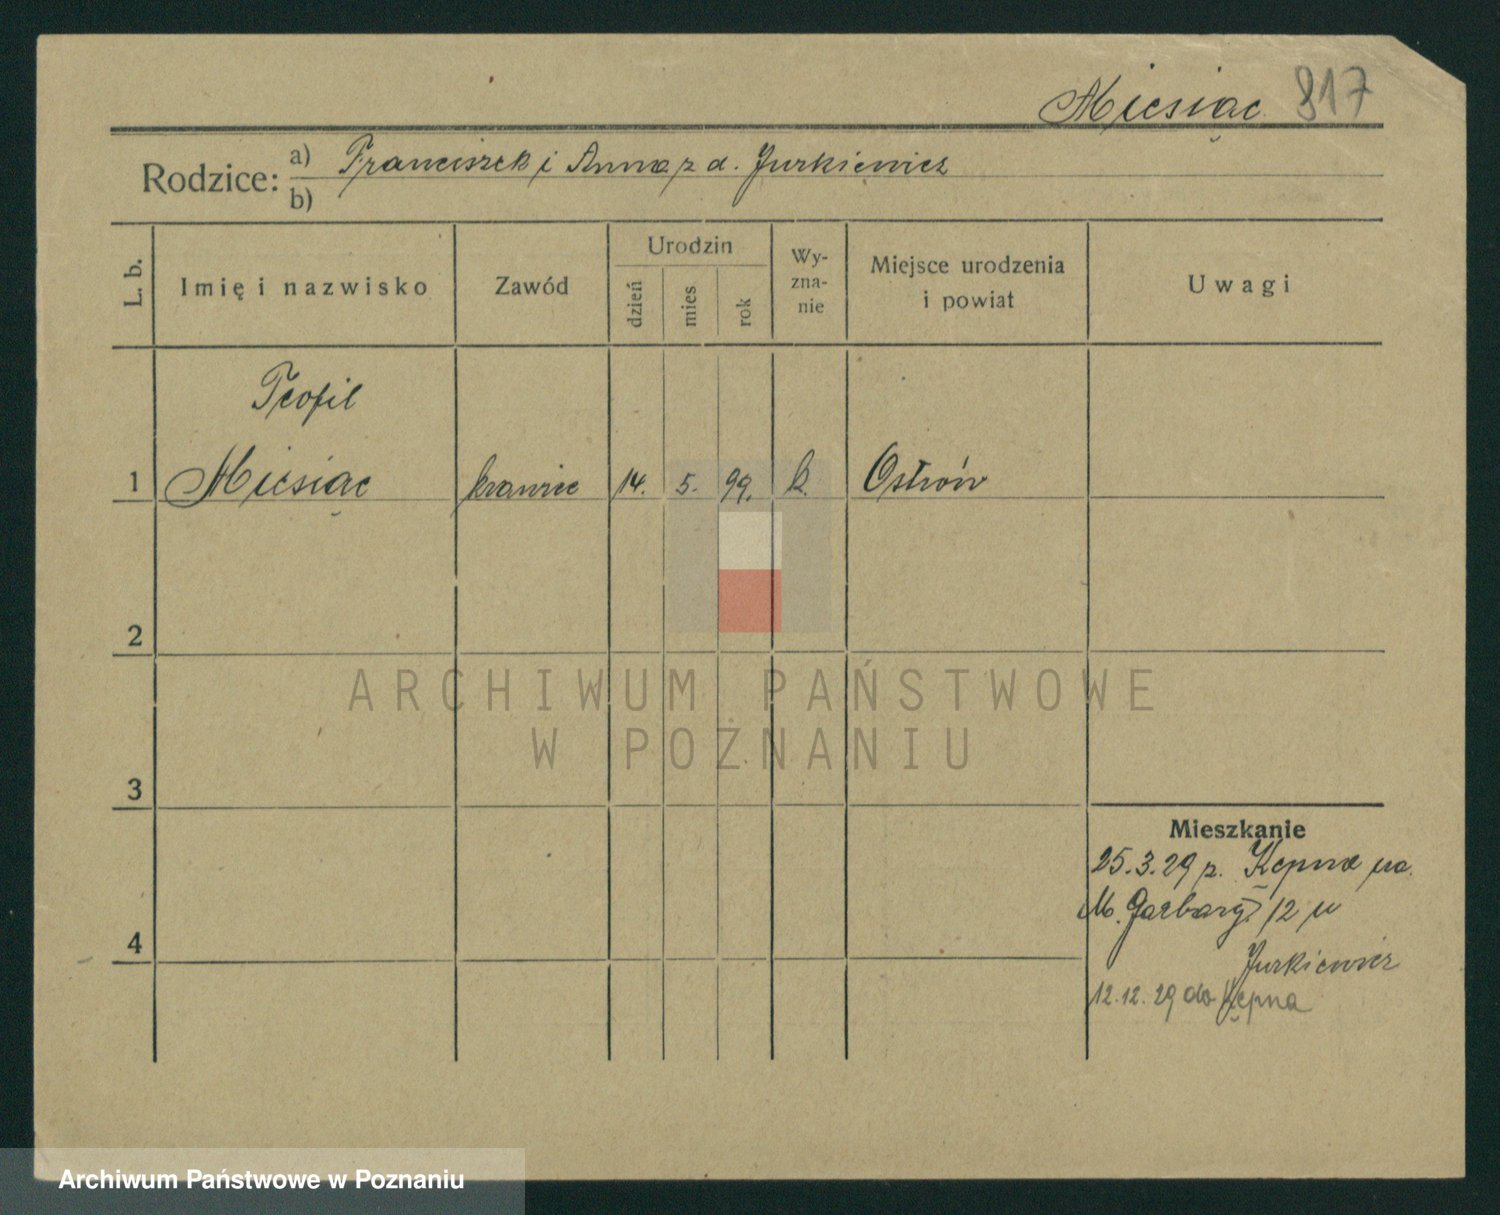 Miesiąc 817
Rodzice: a) Franciszek i Anna z d. Jurkiewicz
b)
L. b. Imię i nazwisko Zawód Urodzin dzień mies rok Wyznanie Miejsce urodzenia i powiat Uwagi
Teofil
1 Miesiąc krawiec 14. 5. 99. k. Ostrów
2
ARCHIWUM PAŃSTWOWE
W POZNANIU
3
Mieszkanie
25.3.29 z. Kępna na
M. Garbary 12 u
4
Jurkiewicz
12.12.29 do Kępna
Archiwum Państwowe w Poznaniu